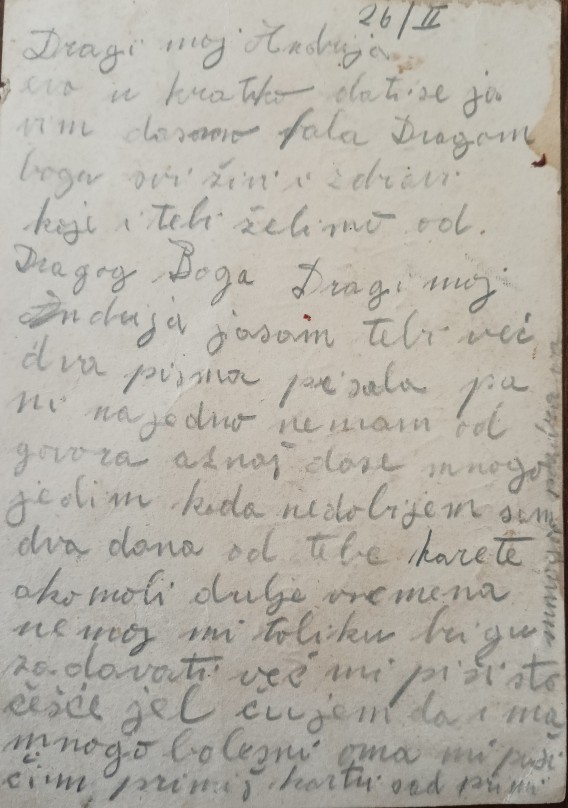 26/II
Dragi moj Andrija
evo u kratko dati se ja
vim dasmo fala Dragom
bogu svi živi i zdravi
koje i tebi želimo od.
Dragog Boga Dragi moj
Andrija jasam tebi več
dva pisma pisala pa
ni najedno nemam od
govora a znaj dase mnogo
jedim kada nedobijem sam
dva dana od tebe karete
ako moli dulje vremena
nemoj mi toliku brigu
zadavati več mi piši sto
češće jel čujem da ima
mnogo bolesni oma mi piši
čim primiš kartu sad primi